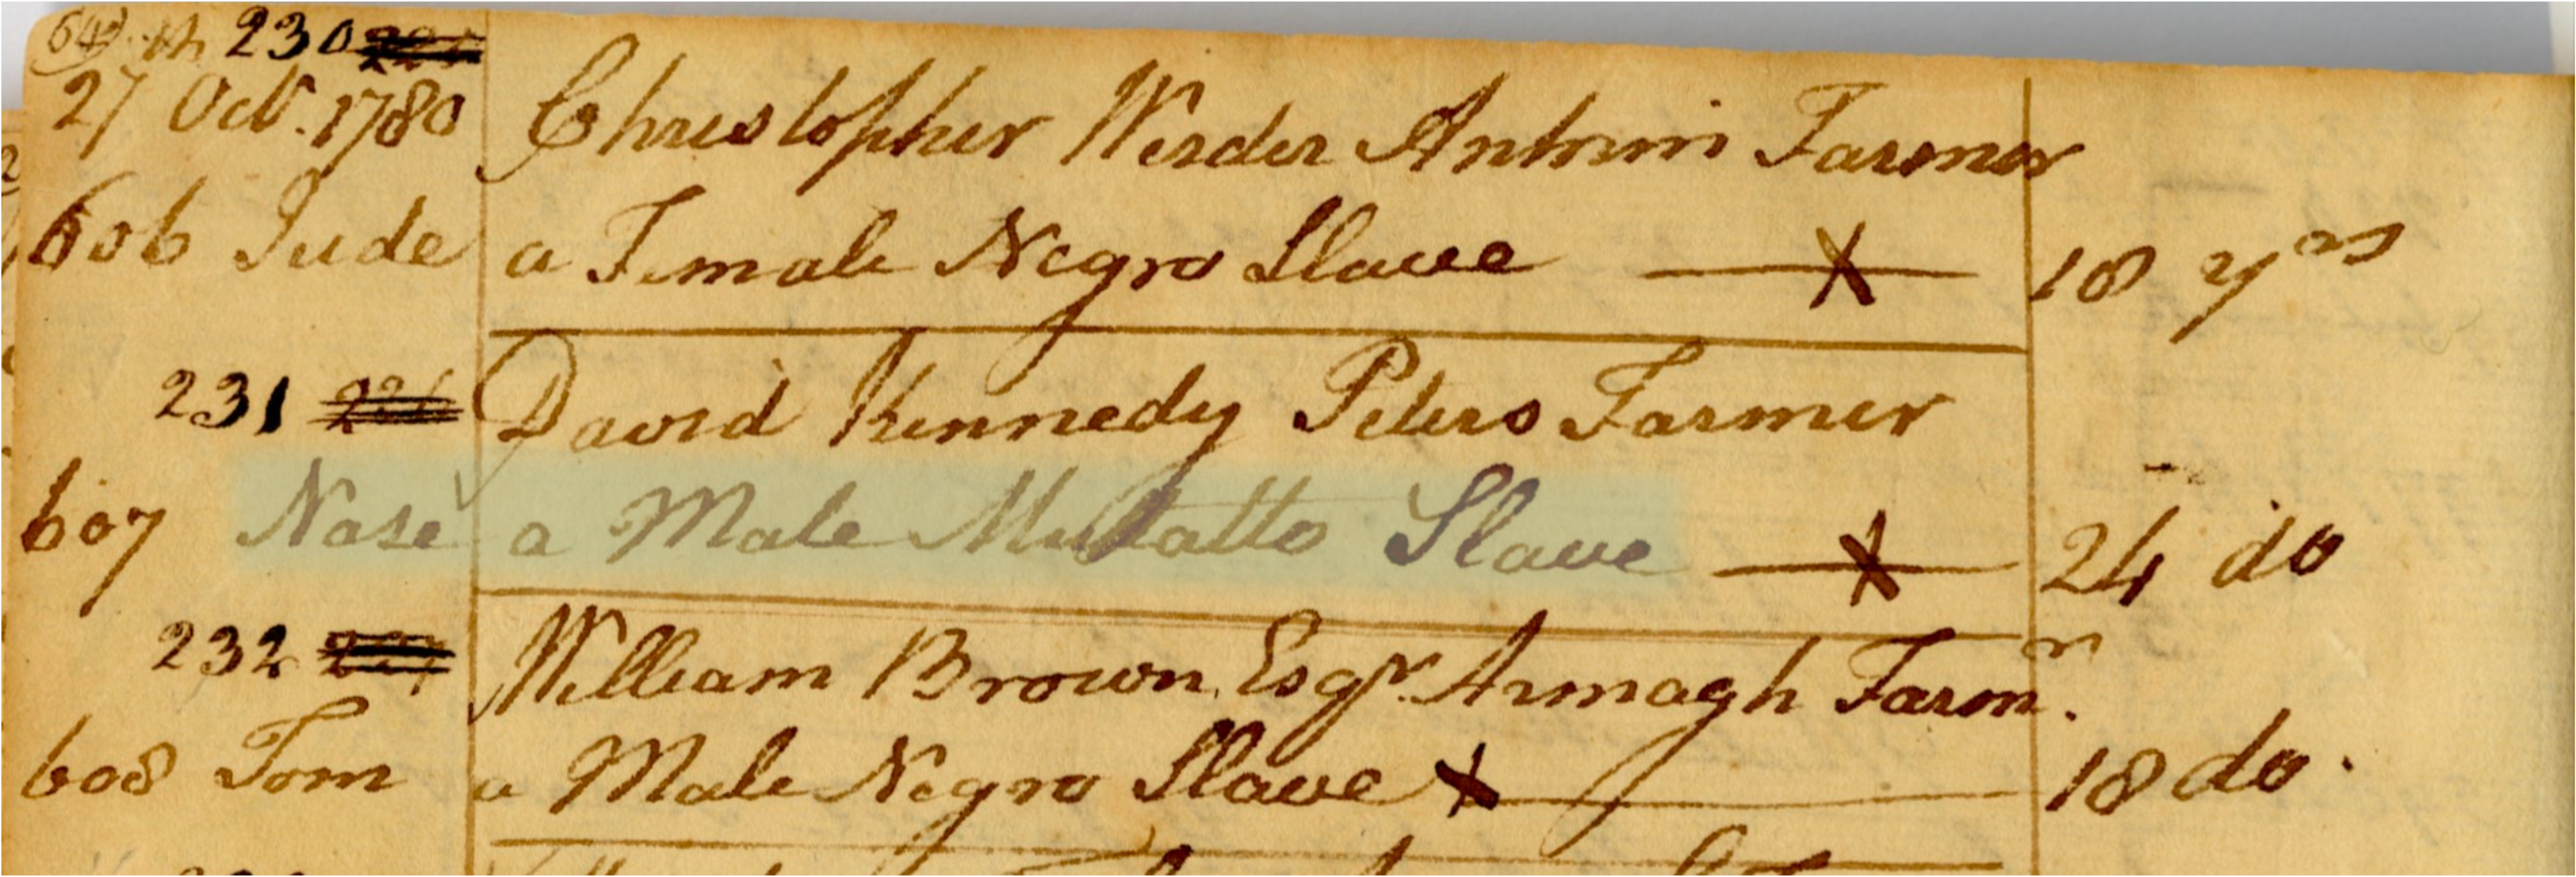 64 230
27 Octr. 1780 Christopher Werder Antrim Farmer
606 Jude a Female Negro Slave X 18 yrs
231 David Kennedy Peters Farmer
607 Nase a Male Mulatto Slave X 24 do
232 William Brown Esqr. Armagh Farmr.
608 Tom a Male Negro Slave X 18 do.